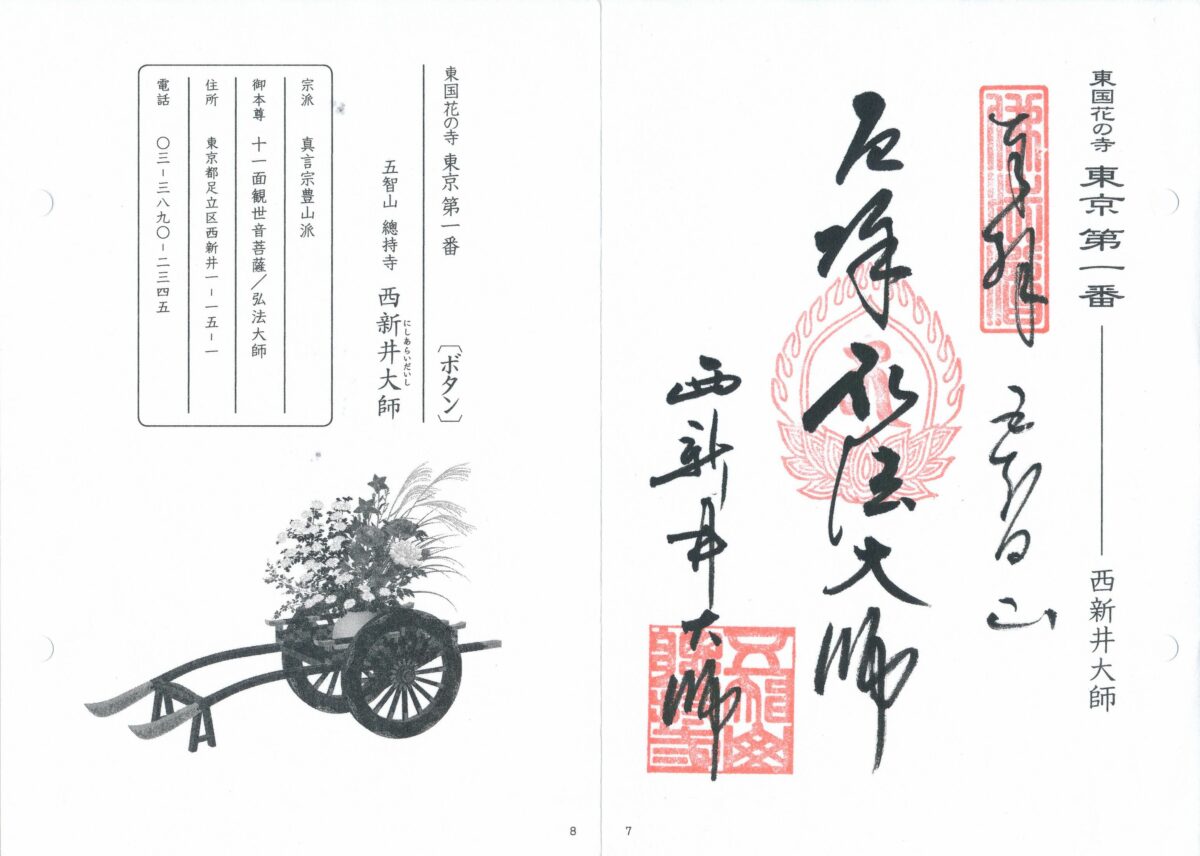 東国花の寺 東京第一番 ── 西新井大師
奉拝 五智山
厄除 弘法大師
西新井大師
7
東国花の寺 東京第一番 〔ボタン〕
五智山 總持寺 西新井大師
にしあらいだいし
宗派 真言宗豊山派
御本尊 十一面観世音菩薩/弘法大師
住所 東京都足立区西新井一-一五-一
電話 〇三-三八九〇-二三四五
8